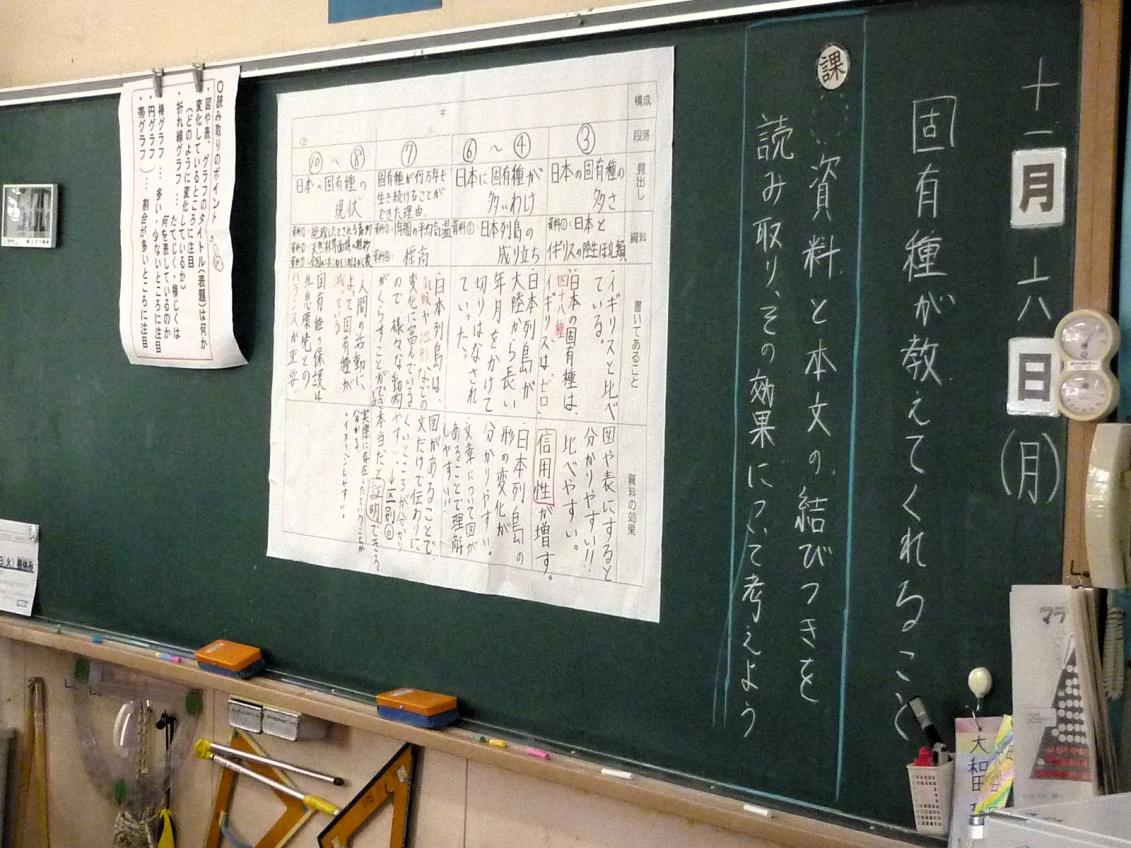 十一月六日(月)
固有種が教えてくれること
課
資料と本文の結びつきを
読み取り、その効果について考えよう
構成
段落
見出し
資料
書いてあること
資料の効果
③
日本の固有種の
多さ
資料①:日本と
イギリスの陸生ほ乳類
イギリスと比べ
ている。
日本の固有種は、
四十八種
イギリスは、ゼロ
図や表にすると
分かりやすい!!
比べやすい。
信用性が増す。
④～⑥
日本に固有種が
多いわけ
資料②:日本列島の
成り立ち
日本列島が
大陸から長い
年月をかけて
切りはなされ
ていった。
日本列島の
形の変化が
分かりやすい。
文章について図が
あることで理解
しやすい!!
⑦
固有種が何万年も
生き続けることが
できた理由。
年間の平均気温
標高
日本列島は、
気候や地形などの
変化に富んでいる
ので様々な動物
がくらすことができる
図があることで、
文だけで伝わりに
くいところが分かり
やすい!→区別◎
⑧～⑩
日本の固有種の
現状
人間の活動に
よって固有種が
減っている
固有種の保護は
生息環境との
バランスが重要
本当だと証明できる
実際に存在したということが
分かる
・イメージしやすい。
○読み取りのポイント
・図や表、グラフのタイトル(表題)は何か
・変化しているところに注目
(どのように変化しているか)
・折れ線グラフ…たてじく・横じくは
何を表しているのか
・棒グラフ…多い・少ないところに注目
・円グラフ
・帯グラフ)…割合が多いところに注目
マラ
大和田